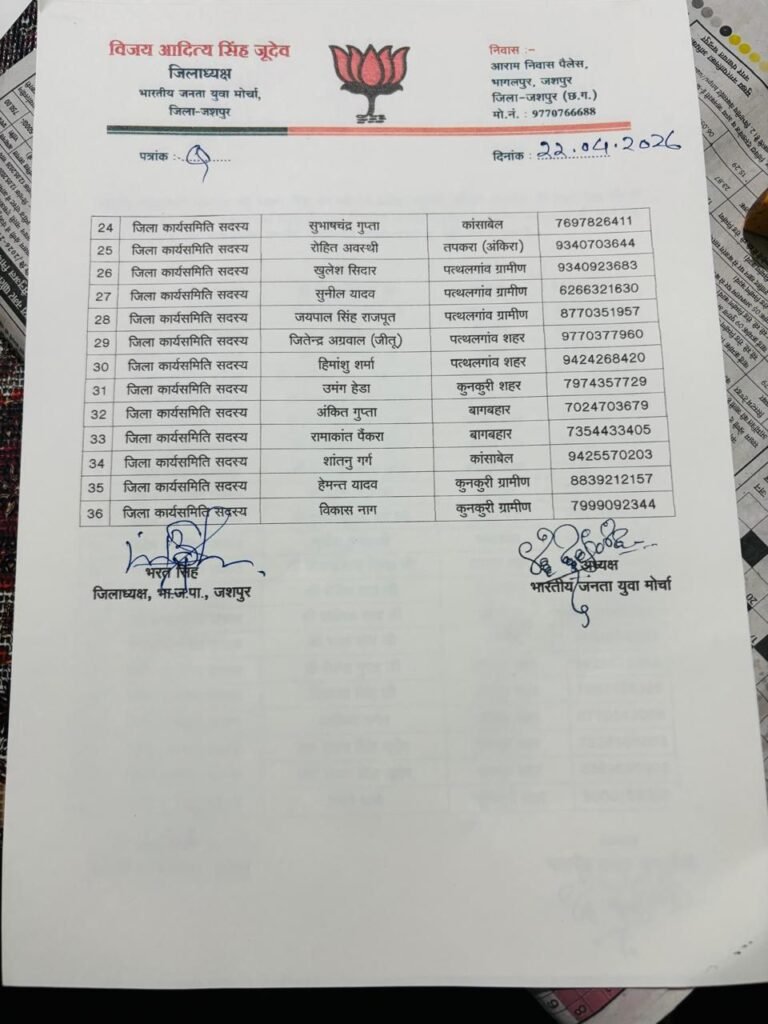 विजय आदित्य सिंह जूदेव
जिलाध्यक्ष
भारतीय जनता युवा मोर्चा,
जिला-जशपुर
निवास :-
आराम निवास पैलेस,
भागलपुर, जशपुर
जिला-जशपुर (छ.ग.)
मो.नं. : 9770766688
पत्रांक :
दिनांक : 22.04.2026
24 जिला कार्यसमिति सदस्य सुभाषचंद्र गुप्ता कांसाबेल 7697826411
25 जिला कार्यसमिति सदस्य रोहित अवस्थी तपकरा (अंकिरा) 9340703644
26 जिला कार्यसमिति सदस्य खुलेश सिदार पत्थलगांव ग्रामीण 9340923683
27 जिला कार्यसमिति सदस्य सुनील यादव पत्थलगांव ग्रामीण 6266321630
28 जिला कार्यसमिति सदस्य जयपाल सिंह राजपूत पत्थलगांव ग्रामीण 8770351957
29 जिला कार्यसमिति सदस्य जितेन्द्र अग्रवाल (जीतू) पत्थलगांव शहर 9770377960
30 जिला कार्यसमिति सदस्य हिमांशु शर्मा पत्थलगांव शहर 9424268420
31 जिला कार्यसमिति सदस्य उमंग हेडा कुनकुरी शहर 7974357729
32 जिला कार्यसमिति सदस्य अंकित गुप्ता बागबहार 7024703679
33 जिला कार्यसमिति सदस्य रामाकांत पैंकरा बागबहार 7354433405
34 जिला कार्यसमिति सदस्य शांतनु गर्ग कांसाबेल 9425570203
35 जिला कार्यसमिति सदस्य हेमन्त यादव कुनकुरी ग्रामीण 8839212157
36 जिला कार्यसमिति सदस्य विकास नाग कुनकुरी ग्रामीण 7999092344
भरत सिंह
जिलाध्यक्ष, भा.ज.पा., जशपुर
अध्यक्ष
भारतीय जनता युवा मोर्चा